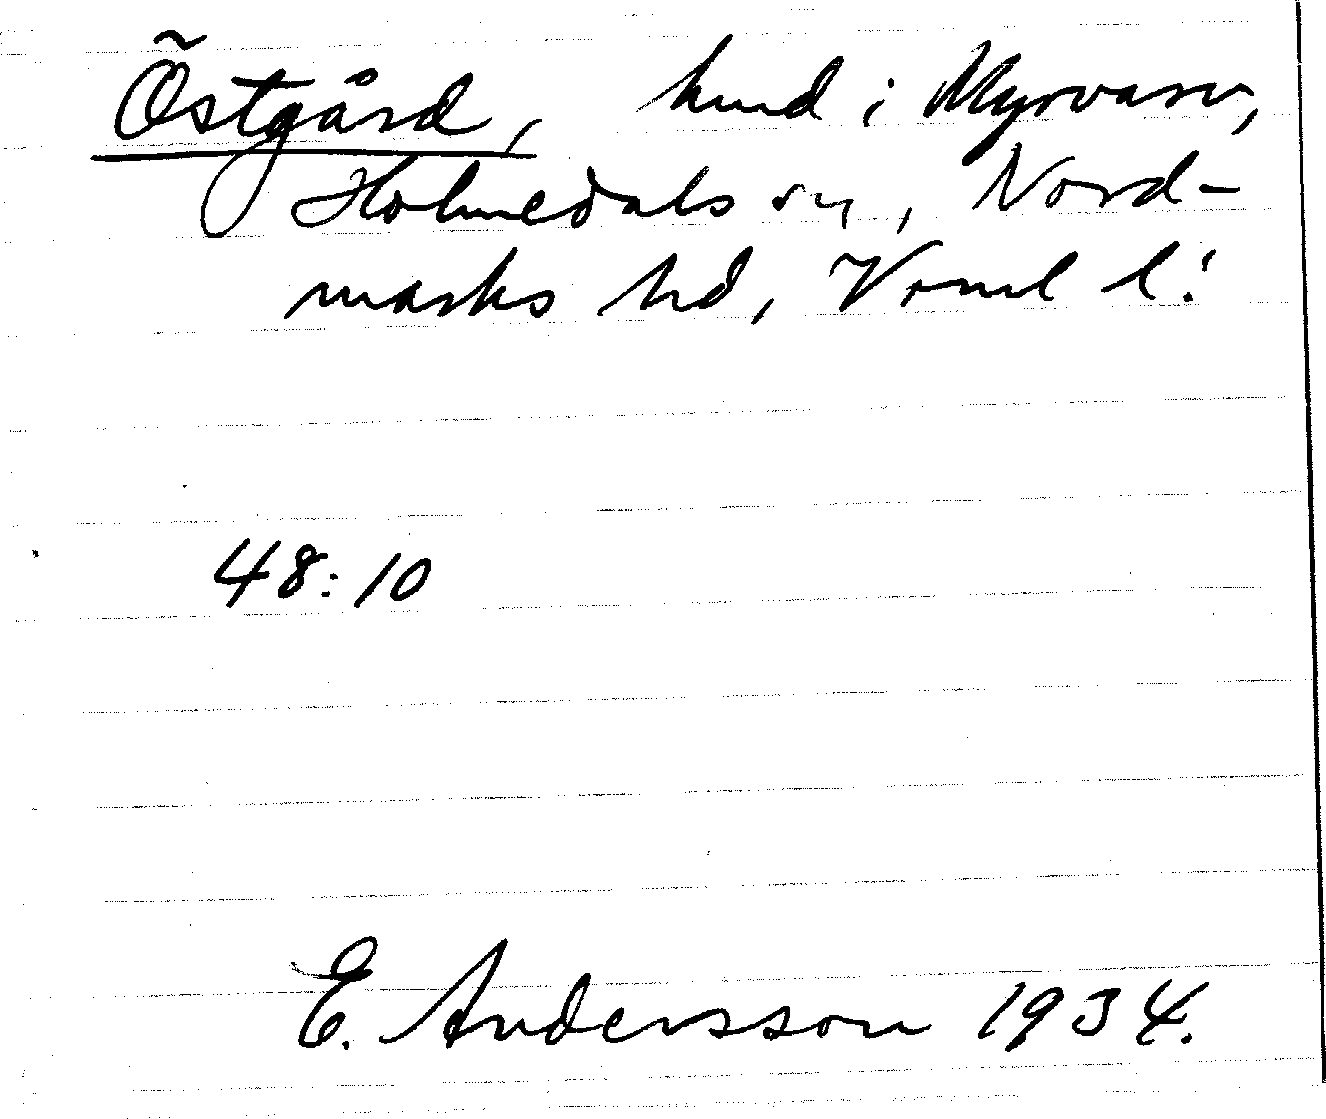 Östgård, hmd i Myrvarv,
Holmedals sn, Nord-
marks hd, Vrml l:
48:10
E. Andersson 1934.